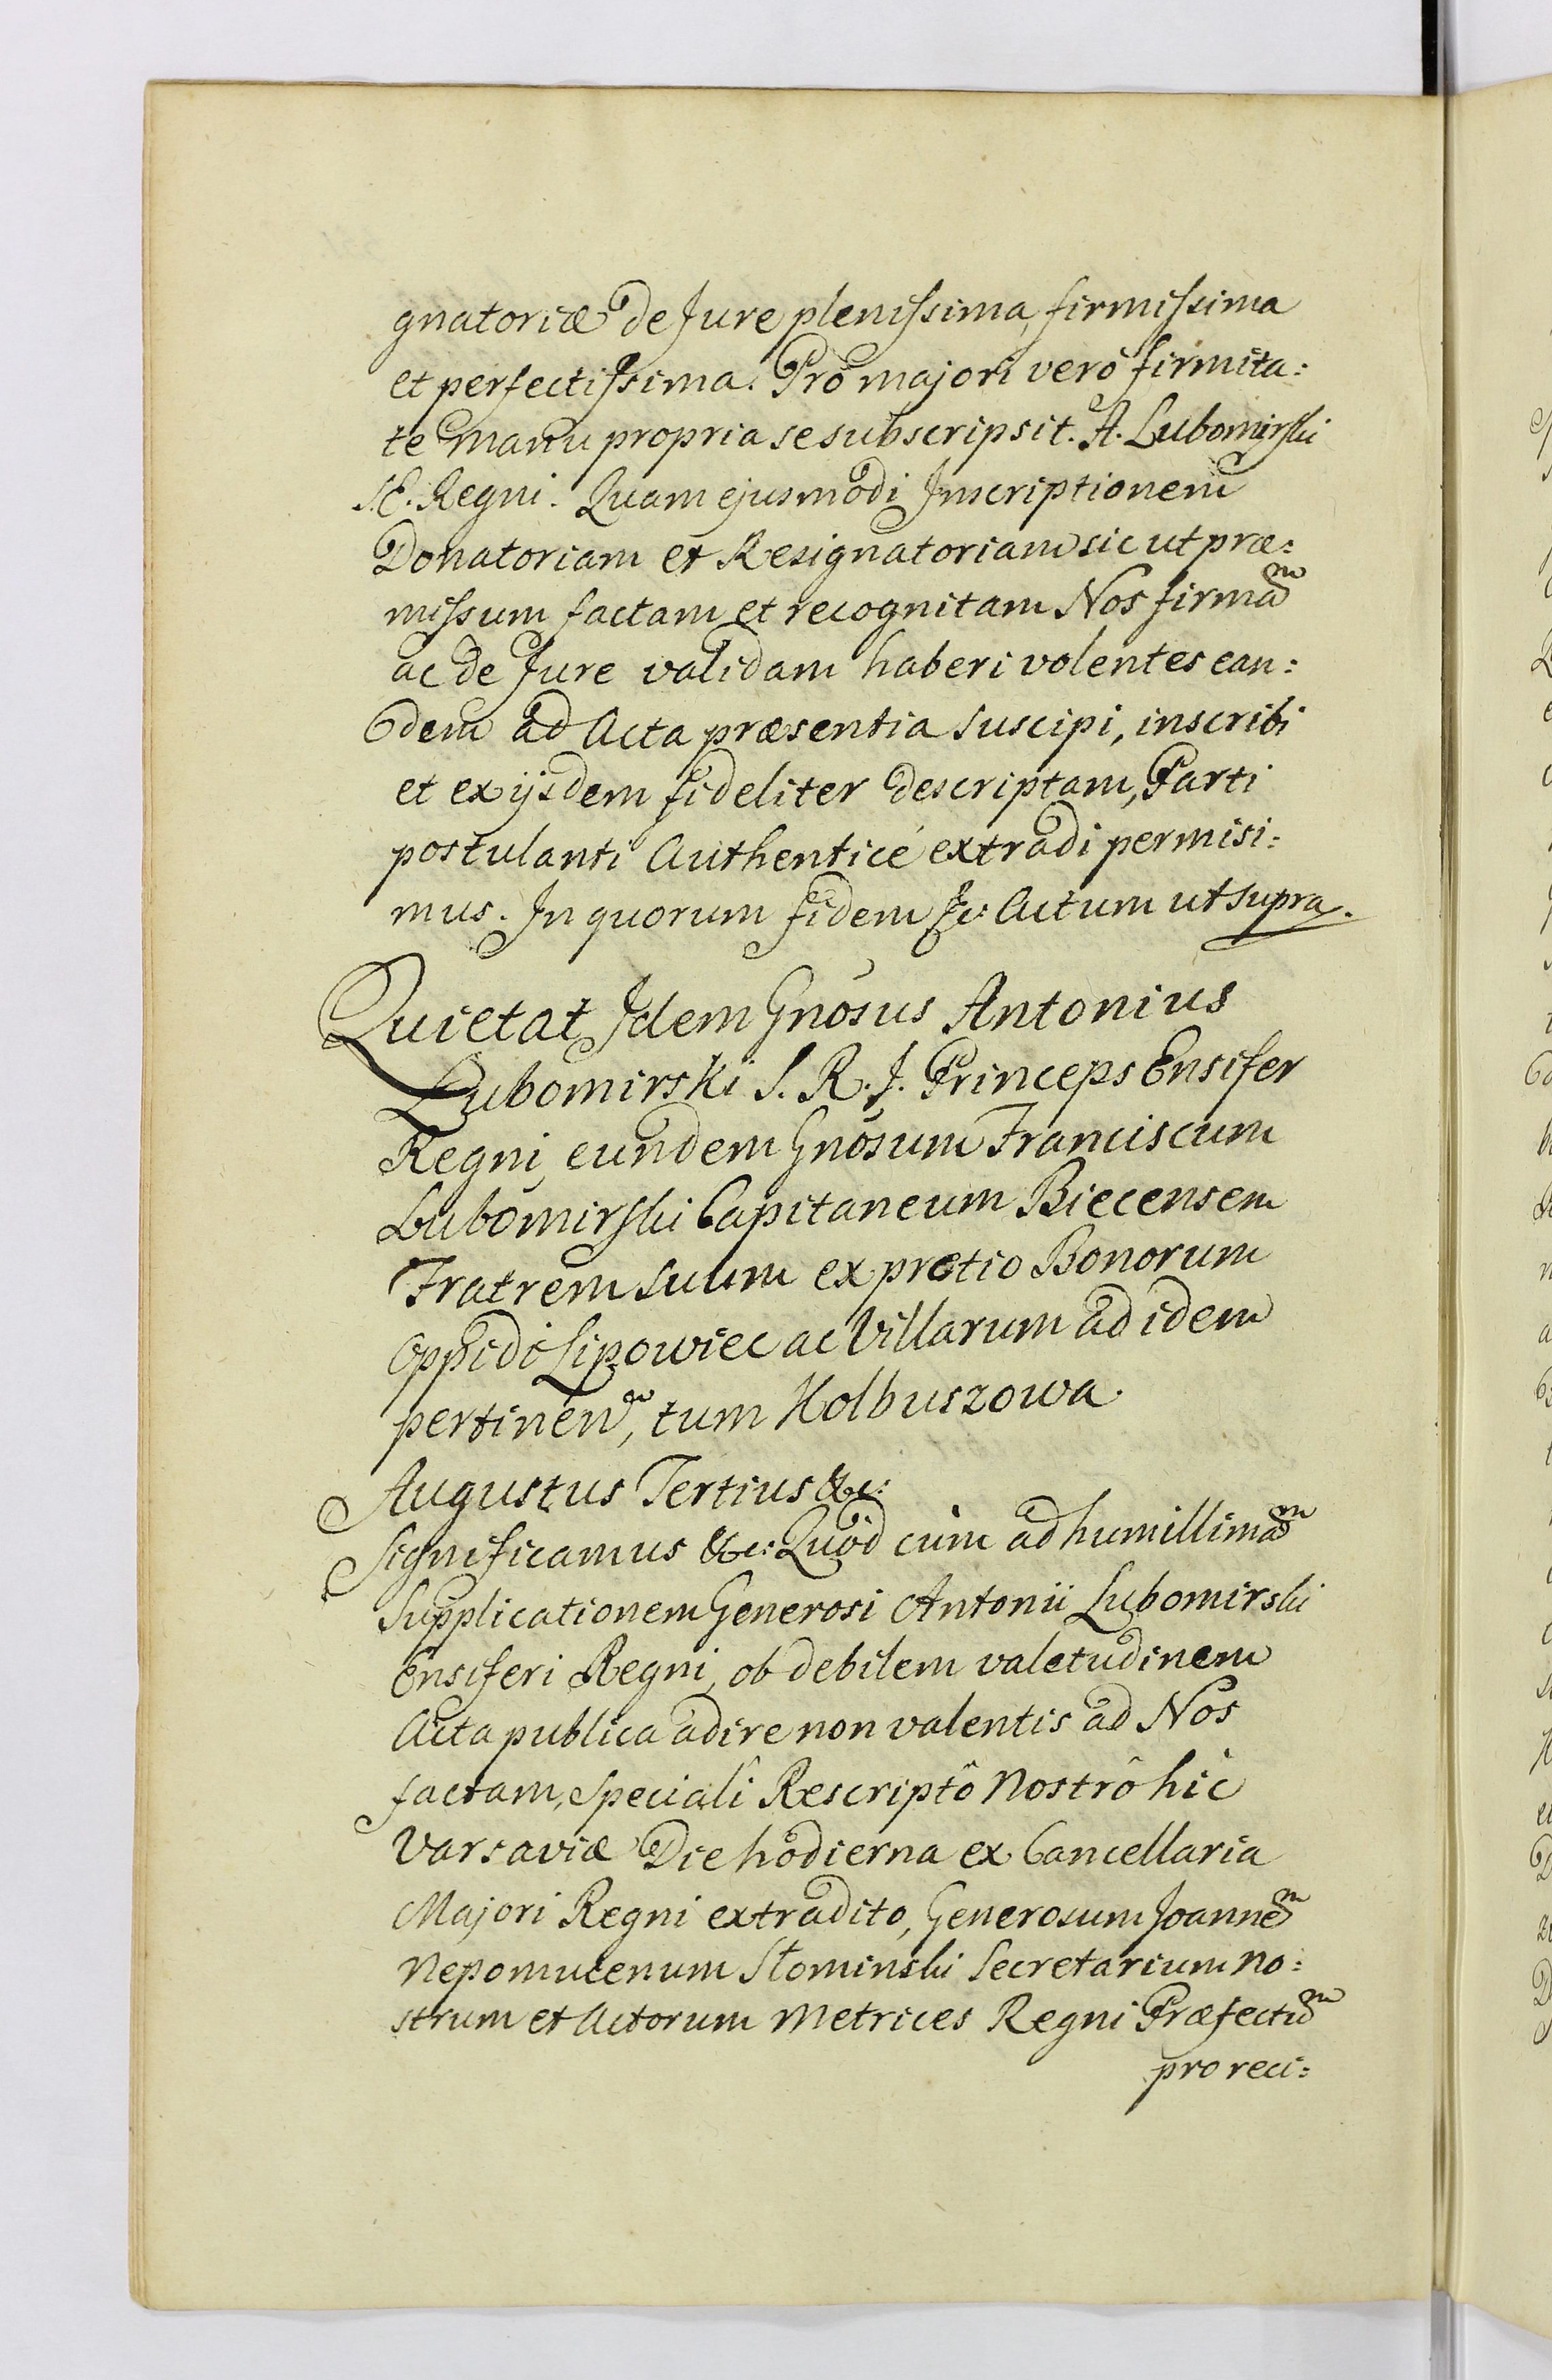 gnatoriæ de Jure plenissima, firmissima
et perfectissima. Pro majori verò firmita:
te manu propria se subscripsit. A. Lubomirski
M. Regni. Quam ejusmodi Inscriptionem
Donatoriam et Resignatoriam sic ut præ:
missum factam et recognitam Nos firmaͫ
ac de Jure validam haberi volentes ean:
dem ad Acta præsentia suscipi, inscribi
et ex ijsdem fideliter descriptam, Parti
postulanti Authenticé extradi permisi:
mus. In quorum fidem &c: Actum ut supra.
Quietat Idem Gnosus Antonius
Lubomirski S. R. J. Princeps Ensifer
Regni, eundem Gnosum Franciscum
Lubomirski Capitaneum Biecensem
Fratrem suum ex pretio Bonorum
Oppidi Lipowiec ac Villarum ad idem
pertinen, tum Kolbuszowa.
Augustus Tertius &c:
Significamus &c: Quòd cùm ad humillimaͫ
Supplicationem Generosi Antonii Lubomirski
Ensiferi Regni, ob debilem valetudinem
Acta publica adire non valentis ad Nos
factam, speciali Rescriptô Nostrô hìc
Varsaviæ Die hodierna ex Cancellaria
Majori Regni extradito, Generosum Joanneͫ
Nepomucenum Słominski Secretarium No:
strum et Actorum Metrices Regni Præfectuͫ
pro reci: